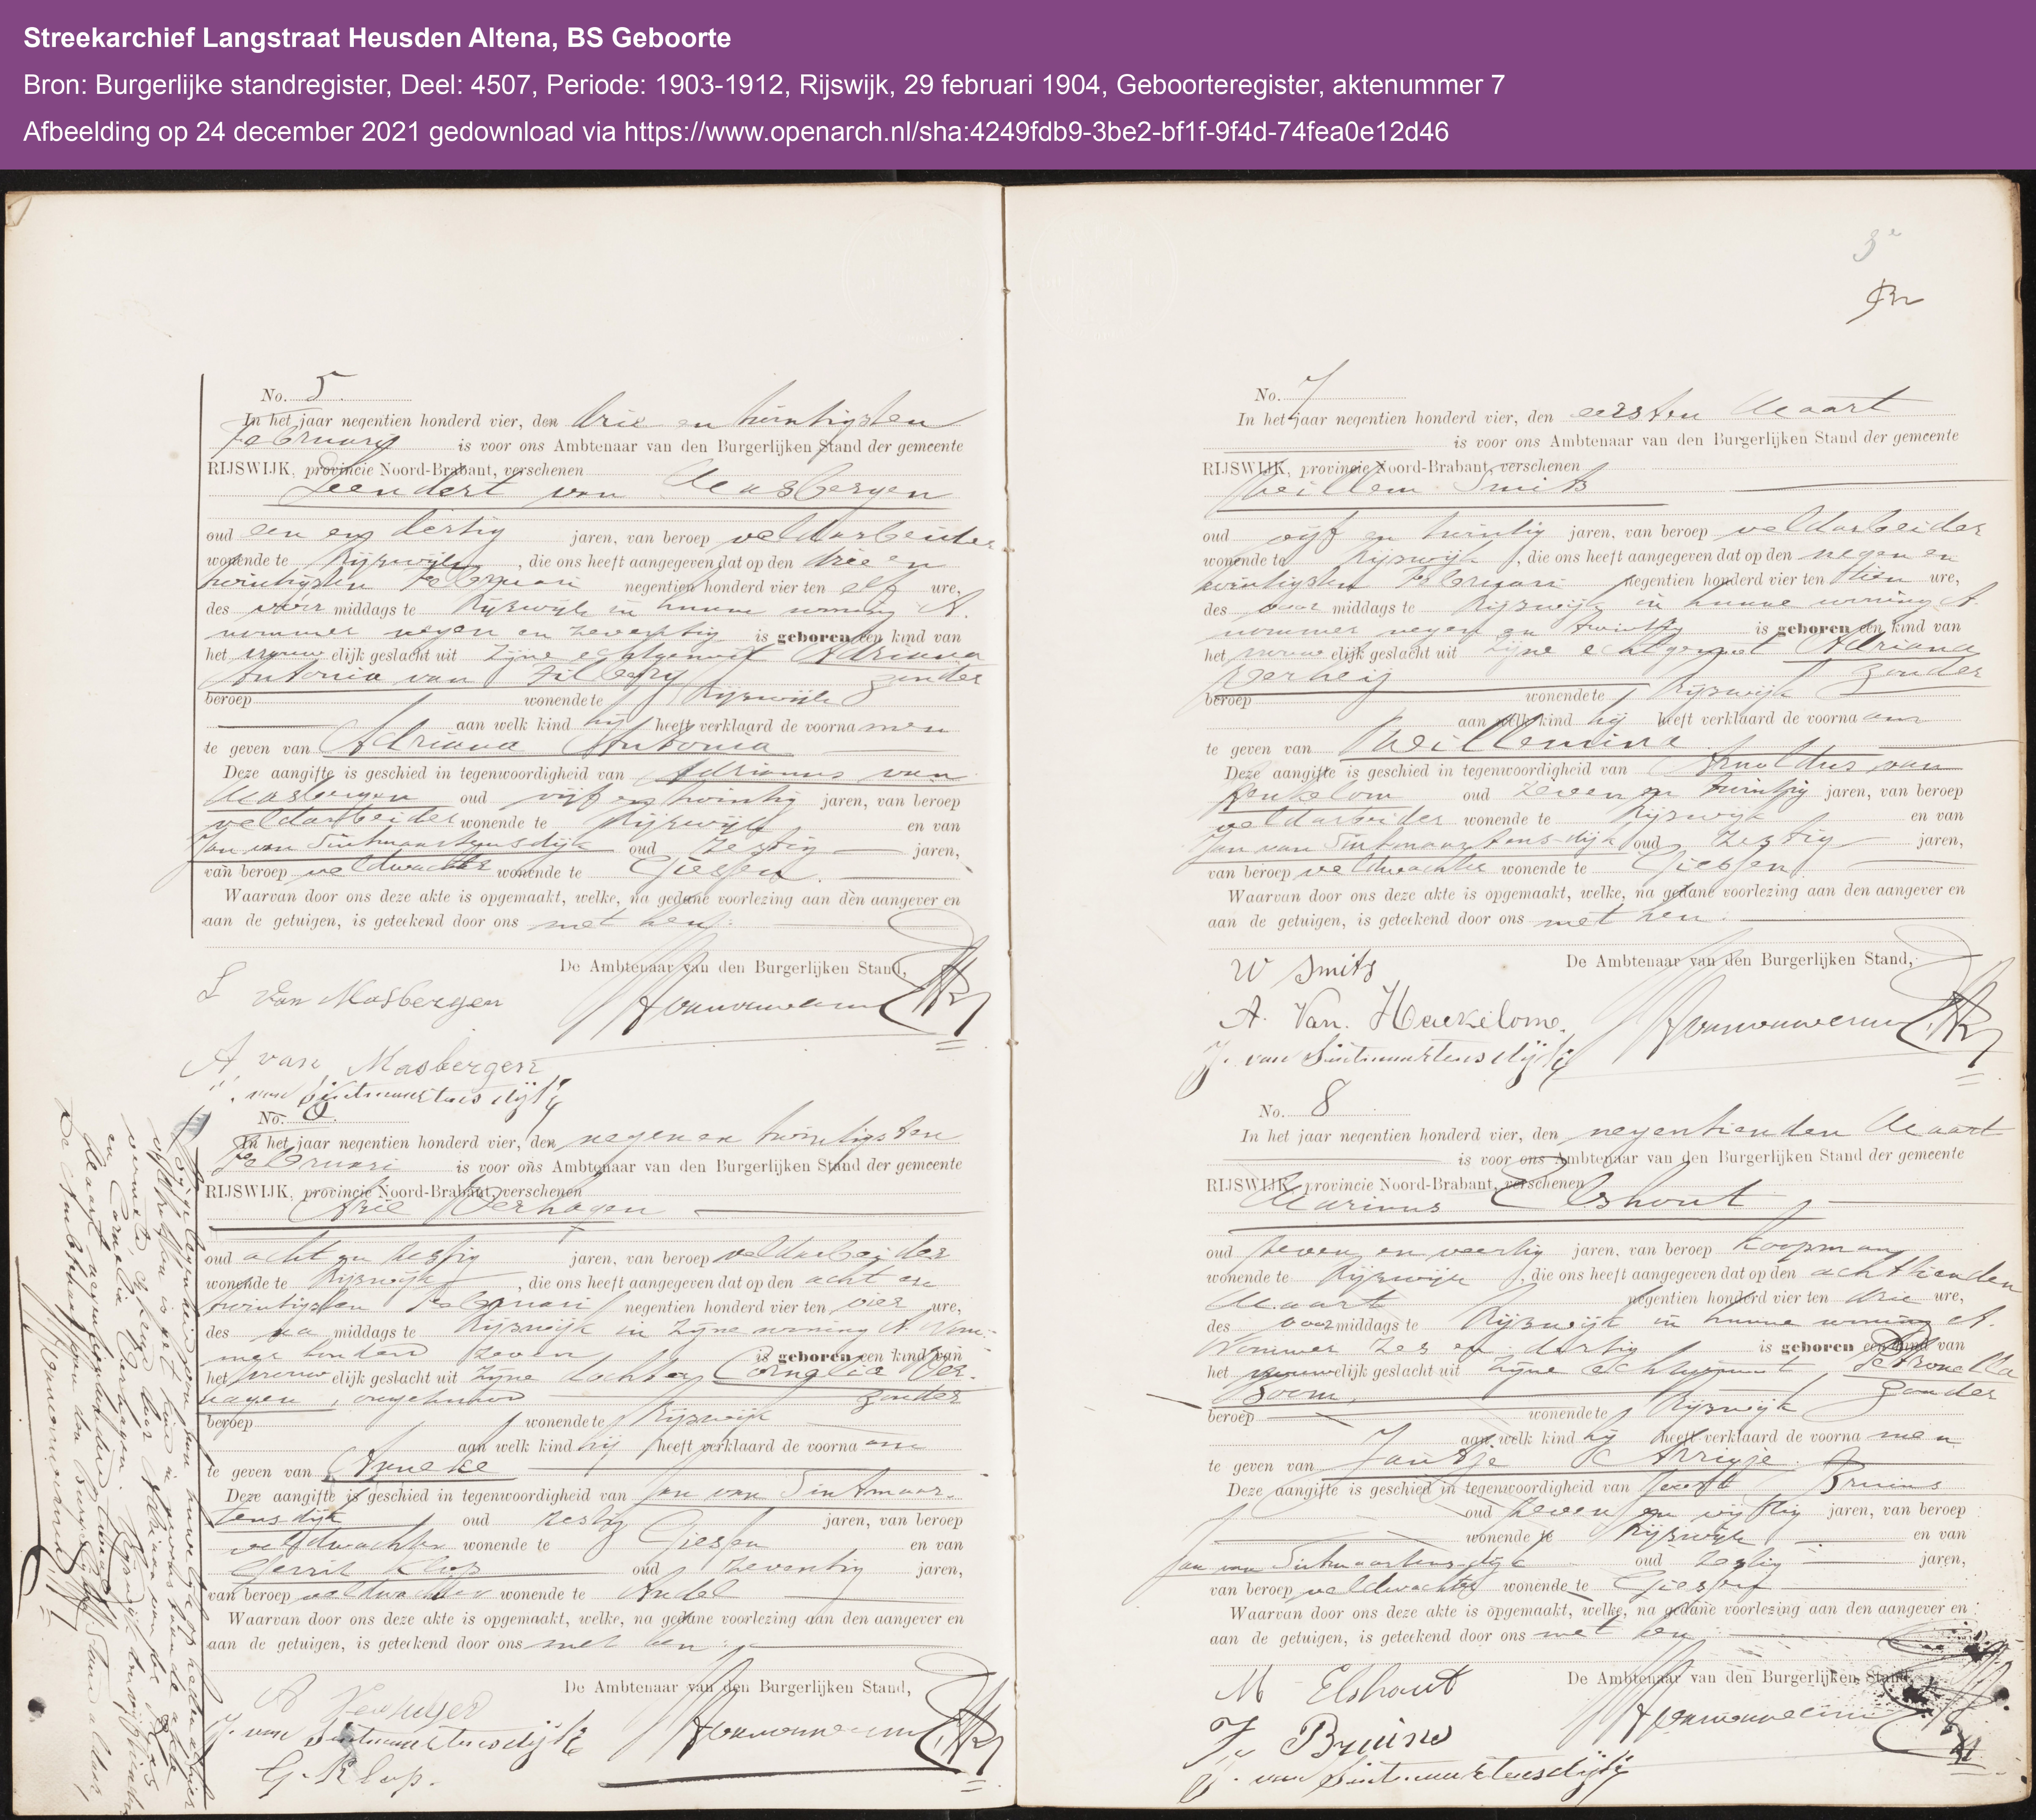 Streekarchief Langstraat Heusden Altena, BS Geboorte
Bron: Burgerlijke standregister, Deel: 4507, Periode: 1903-1912, Rijswijk, 29 februari 1904, Geboorteregister, aktenummer 7
Afbeelding op 24 december 2021 gedownload via https://www.openarch.nl/sha:4249fdb9-3be2-bf1f-9f4d-74fea0e12d46
No. 5.
In het jaar negentien honderd vier, den drie en twintigsten
Februarij is voor ons Ambtenaar van den Burgerlijken Stand der gemeente
RIJSWIJK, provincie Noord-Brabant, verschenen
Leendert van Masbergen
oud een en dertig jaren, van beroep veldarbeider
wonende te Rijswijk, die ons heeft aangegeven dat op den drie en
twintigsten Februari negentien honderd vier ten elf ure,
des voor middags te Rijswijk in hunne woning A.
nommer negen en zeventig is geboren een kind van
het vrouwelijk geslacht uit zijne echtgenoot Adriana
Antonia van Tilborg zonder
beroep wonende te Rijswijk
aan welk kind hij heeft verklaard de voornamen
te geven van Adriana Antonia
Deze aangifte is geschied in tegenwoordigheid van Adrianus van
Masbergen oud vijf en twintig jaren, van beroep
veldarbeider wonende te Rijswijk en van
Jan van Sintmaartensdijk oud zestig jaren,
van beroep veldwachter wonende te Giessen.
Waarvan door ons deze akte is opgemaakt, welke, na gedane voorlezing aan den aangever en
aan de getuigen, is geteekend door ons met hen.
De Ambtenaar van den Burgerlijken Stand,
L van Masbergen
A van Masbergen
J. van Sintmaartensdijk
No. 6.
In het jaar negentien honderd vier, den negen en twintigsten
Februari is voor ons Ambtenaar van den Burgerlijken Stand der gemeente
RIJSWIJK, provincie Noord-Brabant, verschenen
Arie Verhagen
oud acht en zestig jaren, van beroep veldarbeider
wonende te Rijswijk, die ons heeft aangegeven dat op den acht en
twintigsten Februari negentien honderd vier ten vier ure,
des na middags te Rijswijk in zijne woning A. Nom-
mer honderd zeven is geboren een kind van
het vrouwelijk geslacht uit zijne dochter Cornelia Ver-
hagen, ongehuwd zonder
beroep wonende te Rijswijk
aan welk kind hij heeft verklaard de voornaam
te geven van Anneke
Deze aangifte is geschied in tegenwoordigheid van Jan van Sintmaar-
tensdijk oud zestig jaren, van beroep
veldwachter wonende te Giessen en van
Gerrit Klop oud zeventig jaren,
van beroep veldwachter wonende te Andel
Waarvan door ons deze akte is opgemaakt, welke, na gedane voorlezing aan den aangever en
aan de getuigen, is geteekend door ons met hen
De Ambtenaar van den Burgerlijken Stand,
J. van Sintmaartensdijk
G. Klop.
De Ambtenaar van den Burgerlijken Stand aldaar,
3e
No. 7
In het jaar negentien honderd vier, den eersten Maart
is voor ons Ambtenaar van den Burgerlijken Stand der gemeente
RIJSWIJK, provincie Noord-Brabant, verschenen
Willem Smits
oud vijf en twintig jaren, van beroep veldarbeider
wonende te Rijswijk, die ons heeft aangegeven dat op den negen en
twintigsten Februari negentien honderd vier ten tien ure,
des voor middags te Rijswijk in hunne woning A.
nommer negen en twintig is geboren een kind van
het vrouwelijk geslacht uit zijne echtgenoot Adriana
Verheij zonder
beroep wonende te Rijswijk
aan welk kind hij heeft verklaard de voornaam
te geven van Willemina
Deze aangifte is geschied in tegenwoordigheid van Arnoldus van
Heukelom oud zeven en twintig jaren, van beroep
veldarbeider wonende te Rijswijk en van
Jan van Sintmaartensdijk oud zestig jaren,
van beroep veldwachter wonende te Giessen.
Waarvan door ons deze akte is opgemaakt, welke, na gedane voorlezing aan den aangever en
aan de getuigen, is geteekend door ons met hen.
De Ambtenaar van den Burgerlijken Stand,
W Smits
A. Van. Heukelome.
J. van Sintmaartensdijk
No. 8
In het jaar negentien honderd vier, den negentienden Maart
is voor ons Ambtenaar van den Burgerlijken Stand der gemeente
RIJSWIJK, provincie Noord-Brabant, verschenen
Marinus Elshout
oud zeven en veertig jaren, van beroep koopman
wonende te Rijswijk, die ons heeft aangegeven dat op den achttienden
Maart negentien honderd vier ten drie ure,
des voormiddags te Rijswijk in hunne woning A.
Nommer zes en dertig is geboren een kind van
het vrouwelijk geslacht uit zijne echtgenoot Petronella
Boom, zonder
beroep wonende te Rijswijk
aan welk kind hij heeft verklaard de voornamen
te geven van Jantje Arrigje
Deze aangifte is geschied in tegenwoordigheid van Bruins
oud zeven en vijftig jaren, van beroep
wonende te Rijswijk en van
Jan van Sintmaartensdijk oud zestig jaren,
van beroep veldwachter wonende te Giessen
Waarvan door ons deze akte is opgemaakt, welke, na gedane voorlezing aan den aangever en
aan de getuigen, is geteekend door ons met hen
De Ambtenaar van den Burgerlijken Stand,
M Elshout
Bruins
J. van Sintmaartensdijk